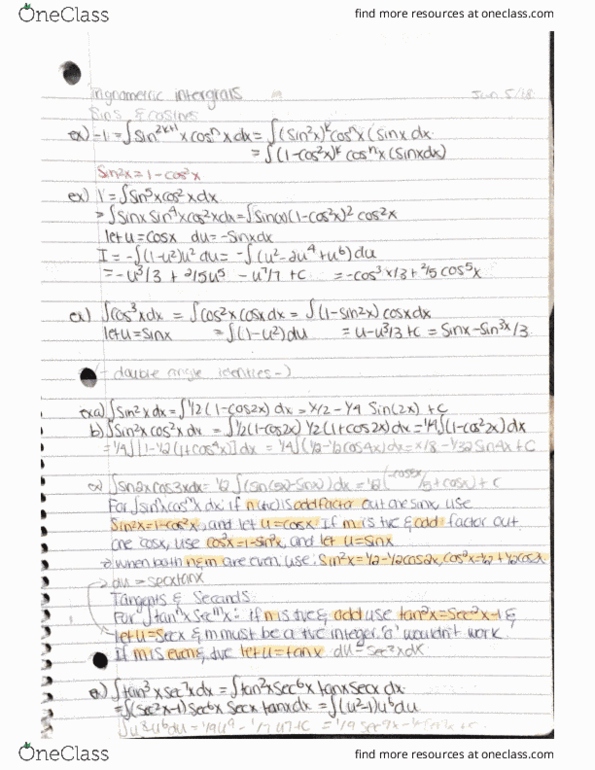 OneClass
find more resources at oneclass.com
Trignometric intergrals
Jan 5/18
Sins & cosines
ex) -1 = ∫sin²ᵏ⁺¹ x cosⁿ x dx = ∫(sin²x)ᵏ cosⁿx (sinx dx
= ∫(1-cos²x)ᵏ cosⁿx (sinxdx)
Sin2x = 1 - cos²x
ex) I = ∫sin⁵x cos²x dx
= ∫sinx sin⁴x cos²x dx = ∫sinx(1-cos²x)² cos²x
let u = cosx du = -sinxdx
I = -∫(1-u²)u² du = -∫(u²-2u⁴+u⁶)du
= -u³/3 + 2/5u⁵ - u⁷/7 + C = -cos³x/3 + 2/5 cos⁵x
ex) ∫cos³x dx = ∫cos²x cosx dx = ∫(1-sin2x) cosxdx
let u = sinx = ∫(1-u²)du = u-u³/3 + C = sinx - sin³x/3
- double angle identies -
exa) ∫sin²x dx = ∫1/2(1-cos2x) dx = x/2 - 1/4 Sin(2x) + C
b) ∫sin²x cos²x dx = ∫1/2(1-cos2x) 1/2(1+cos2x)dx = 1/4∫(1-cos²2x)dx
= 1/4∫[1-1/2(1+cos4x)]dx = 1/4∫(1/2-1/2cos4x)dx = x/8 - 1/32 Sin4x + C
c) ∫sin2x cos3x dx = 1/2∫(sin(5x)-sinx)dx = 1/2(-cos5x/5 + cosx) + C
For ∫sinⁿx cosᵐx dx: if n(+ve) is odd factor out one sinx, use
Sin²x = 1-cos²x, and let u = cosx if m is +ve & odd factor out
one cosx, use cos²x = 1-sin²x, and let u = sinx
when both n&m are even use: Sin²x = 1/2-1/2cos2x, cos²x = 1/2+1/2cos2x
du = secxtanx
Tangents & Secands:
For ∫tanⁿx secᵐx: if n is +ve & odd use tan²x = sec²x-1 &
let u = secx & m must be a +ve integer. '0' wouldn't work.
If m is even & +ve let u = tanx du = sec²xdx
e) ∫tan³x sec⁷x dx = ∫tan²x sec⁶x tanx secx dx
= ∫(sec²x-1) sec⁶x secx tanx dx = ∫(u²-1)u⁶du
∫u⁸-u⁶du = 1/9u⁹ - 1/7u7 + C = 1/9 sec⁹x
OneClass
find more resources at oneclass.com